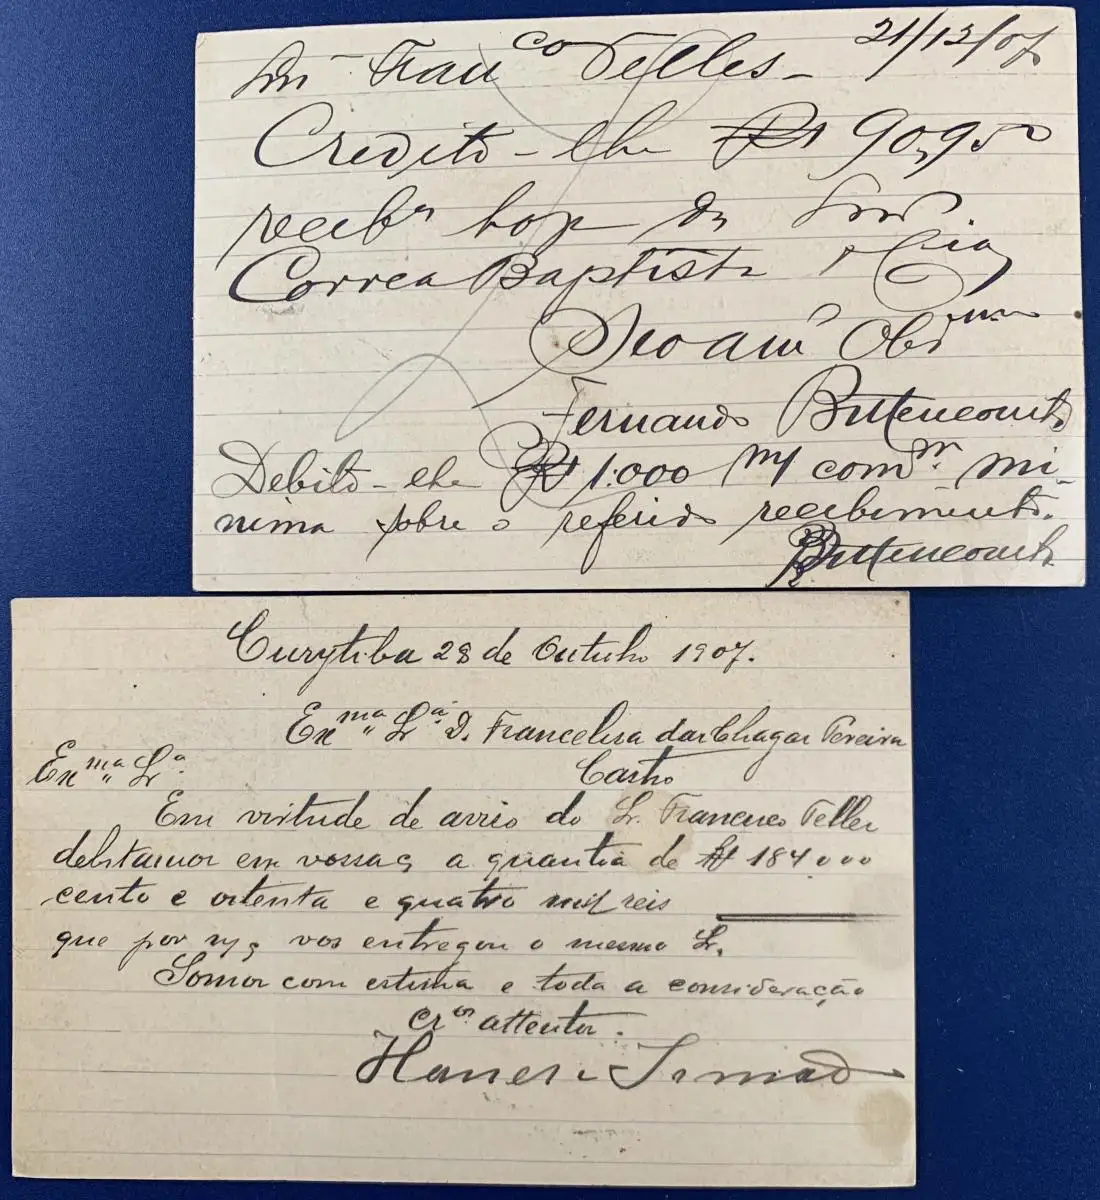 Snr Franco Telles - 21/12/07
Credito-lhe Rs 90,950
recibs hoje de Snrs
Correa Baptista & Cia
De Vam. Obrmo
Fernando Bittencourt
Debito-lhe Rs 1:000 m/ commm mi-
nima sobre o referido recebimento.
Bittencourt
Curytiba 28 de Outubro 1907.
Exma Sra D. Francelisa das Chagas Pereira
Castro
Exma Sra
Em virtude de aviso do Sr. Francisco Telles
debitamos em vossa c/ a quantia de Rs 184.000
cento e oitenta e quatro mil reis
que por n/c vos entregou o mesmo Sr.
Somos com estima e toda a consideração
Cros attentos.
Irmão